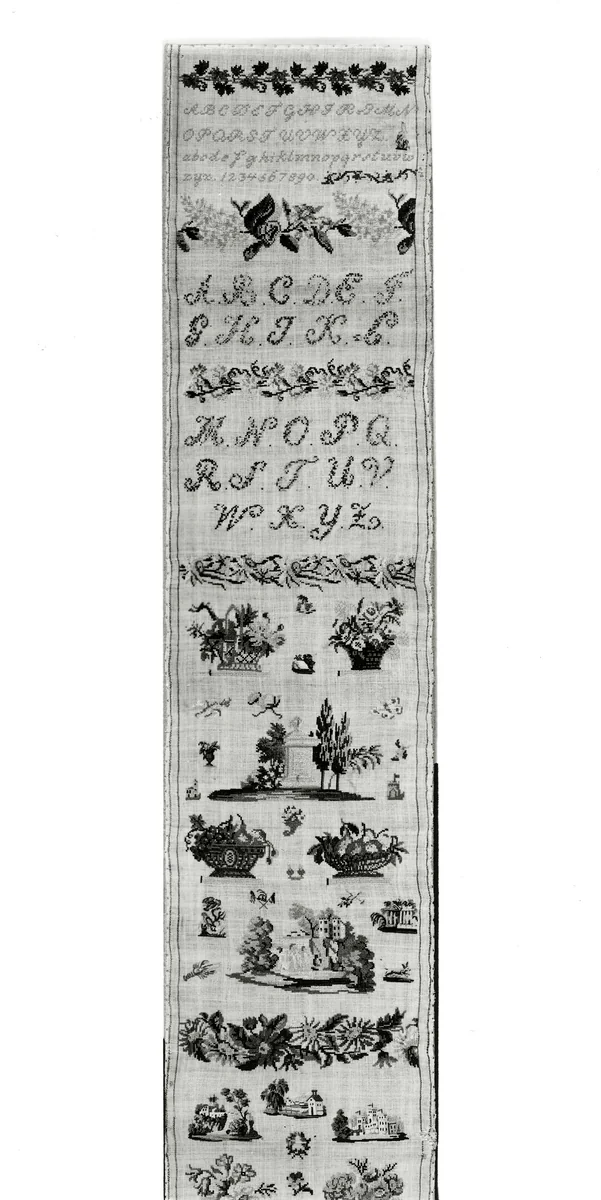 ABCDEFGHIKLMN
OPQRSTUVWXYZ.
abcdefghiklmnopqrstuvw
xyz.1234567890.
A.B.C.D.E.F.
G.H.I.K.L.
M.N.O.P.Q.
R.S.T.U.V.
W.X.Y.Z.